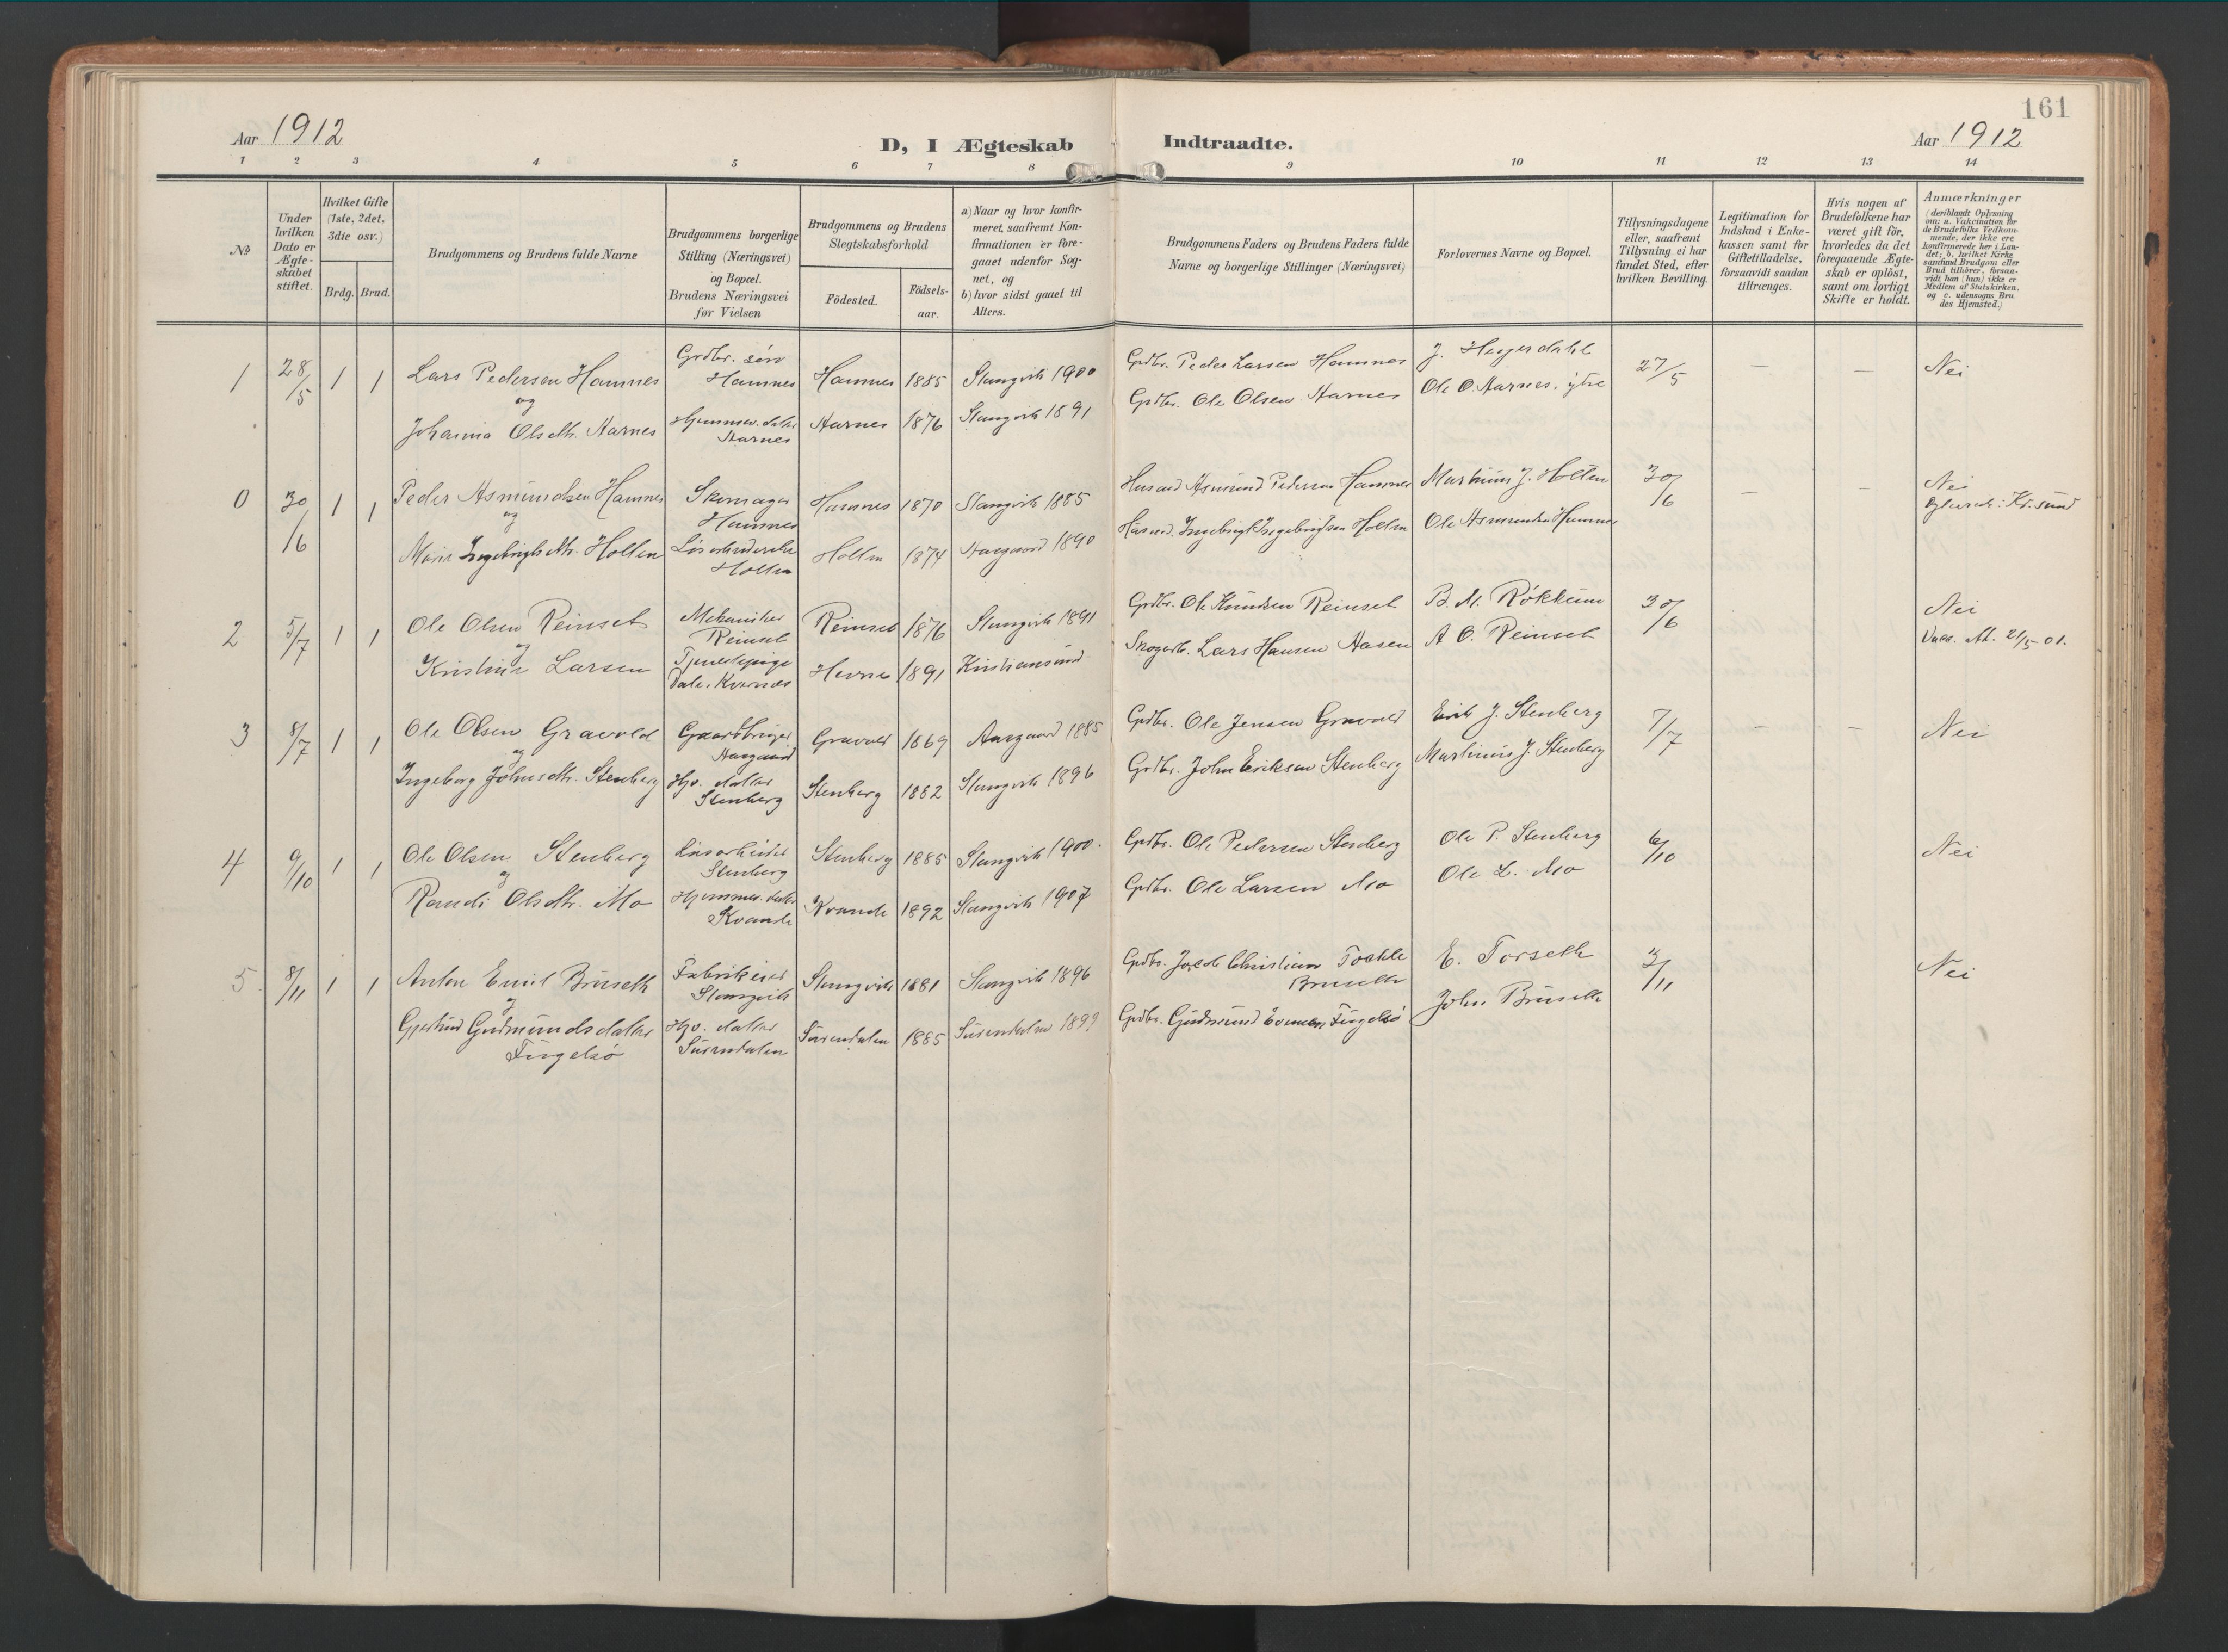 161
Aar 1912
D, I Ægteskab Indtraadte.
Aar 1912
1 2 3 4 5 6 7 8 9 10 11 12 13 14
No
Under hvilken Dato er Ægteskabet stiftet.
Hvilket Gifte (1ste, 2det, 3die osv.)
Brdg. Brud.
Brudgommens og Brudens fulde Navne
Brudgommens borgerlige Stilling (Næringsvei) og Bopæl. Brudens Næringsvei før Vielsen
Brudgommens og Brudens Slegtskabsforhold
Födested.
Födselsaar.
a) Naar og hvor konfirmeret, saafremt Konfirmationen er foregaaet udenfor Sognet, og
b) hvor sidst gaaet til Alters.
Brudgommens Faders og Brudens Faders fulde Navne og borgerlige Stillinger (Næringsvei)
Forlovernes Navne og Bopæl.
Tillysningsdagene eller, saafremt Tillysning ei har fundet Sted, efter hvilken Bevilling.
Legitimation for Indskud i Enkekassen samt for Giftetilladelse, forsaavidt saadan tiltrænges.
Hvis nogen af Brudefolkene har været gift för, hvorledes da det foregaaende Ægteskab er oplöst, samt om lovligt Skifte er holdt.
Anmærkninger
(deriblandt Oplysning om: a. Vakcination for de Brudefolks Vedkommende, der ikke ere konfirmerede her i Landet; b. hvilket Kirkesamfund Brudgom eller Brud tilhörer, forsaavidt han (hun) ikke er Medlem af Statskirken, og c. udensogns Brudes Hjemsted.)
1 28/5 1 1 Lars Pedersen Hamnes Grdbr. søn Hamnes Hamnes 1885 Stangvik 1900 Grdbr. Peder Larsen Hamnes J. Heggerdahl 27/5 — — Nei
og
Johanna Olsdtr. Aarnes Hjemmev. datter Aarnes Aarnes 1876 Stangvik 1891 Grdbr. Ole Olsen Aarnes Ole O. Aarnes, ytre
0 30/6 1 1 Peder Asmundsen Hamnes Skomager Hamnes Hamnes 1870 Stangvik 1885 Husmd Asmund Pedersen Hamnes Martinus J. Holten 30/6 — — Nei
og
Ingebrigtsdtr. Holten Holten Holten 1874 Aasgaard 1890 Husmd. Ingebrigt Ingebrigtsen Holten Ole Asmundsen Hamnes
2 5/7 1 1 Ole Olsen Reinset Mekaniker Reinset Reinset 1876 Stangvik 1891 Grdbr. Ole Knudsen Reinset B. M. Røkkum 30/6 Nei
og
Kristine Larsen Tjenestepige Dale, Kvernes Hevne 1891 Kristiansund Skogarb. Lars Hansen Aasen A O. Reinset Vacc. Att. 21/5 01.
3 8/7 1 1 Ole Olsen Gravold Gaardbruger Aasgaard Gravold 1869 Aasgaard 1885 Grdbr. Ole Jensen Gravold Erik J. Stenberg 7/7 — — Nei
og
Ingeborg Johnsdtr. Stenberg Hjv. datter Stenberg Stenberg 1882 Stangvik 1896 Grdbr. John Eriksen Stenberg Martinus J. Stenberg
4 9/10 1 1 Ole Olsen Stenberg Løsarbeider Stenberg Stenberg 1885 Stangvik 1900. Grdbr. Ole Pedersen Stenberg Ole P. Stenberg 6/10 Nei
og
Randi Olsdtr. Mo Hjemmev. datter Kvande Kvande 1892 Stangvik 1907 Grdbr. Ole Larsen Mo Ole L. Mo
5. 8/11 1 1 Anton Emil Bruseth Fabrikeier Stangvik Stangvik 1881 Stangvik 1896 Grdbr. Jacob Christian Bruseth E. Torseth 3/11 Nei
og
Gjertrud Gudmundsdatter Fugelsø Hjv. datter Surendalen Surendalen 1885 Surendalen 1899 Grdbr. Gudmund Fugelsø John Bruseth